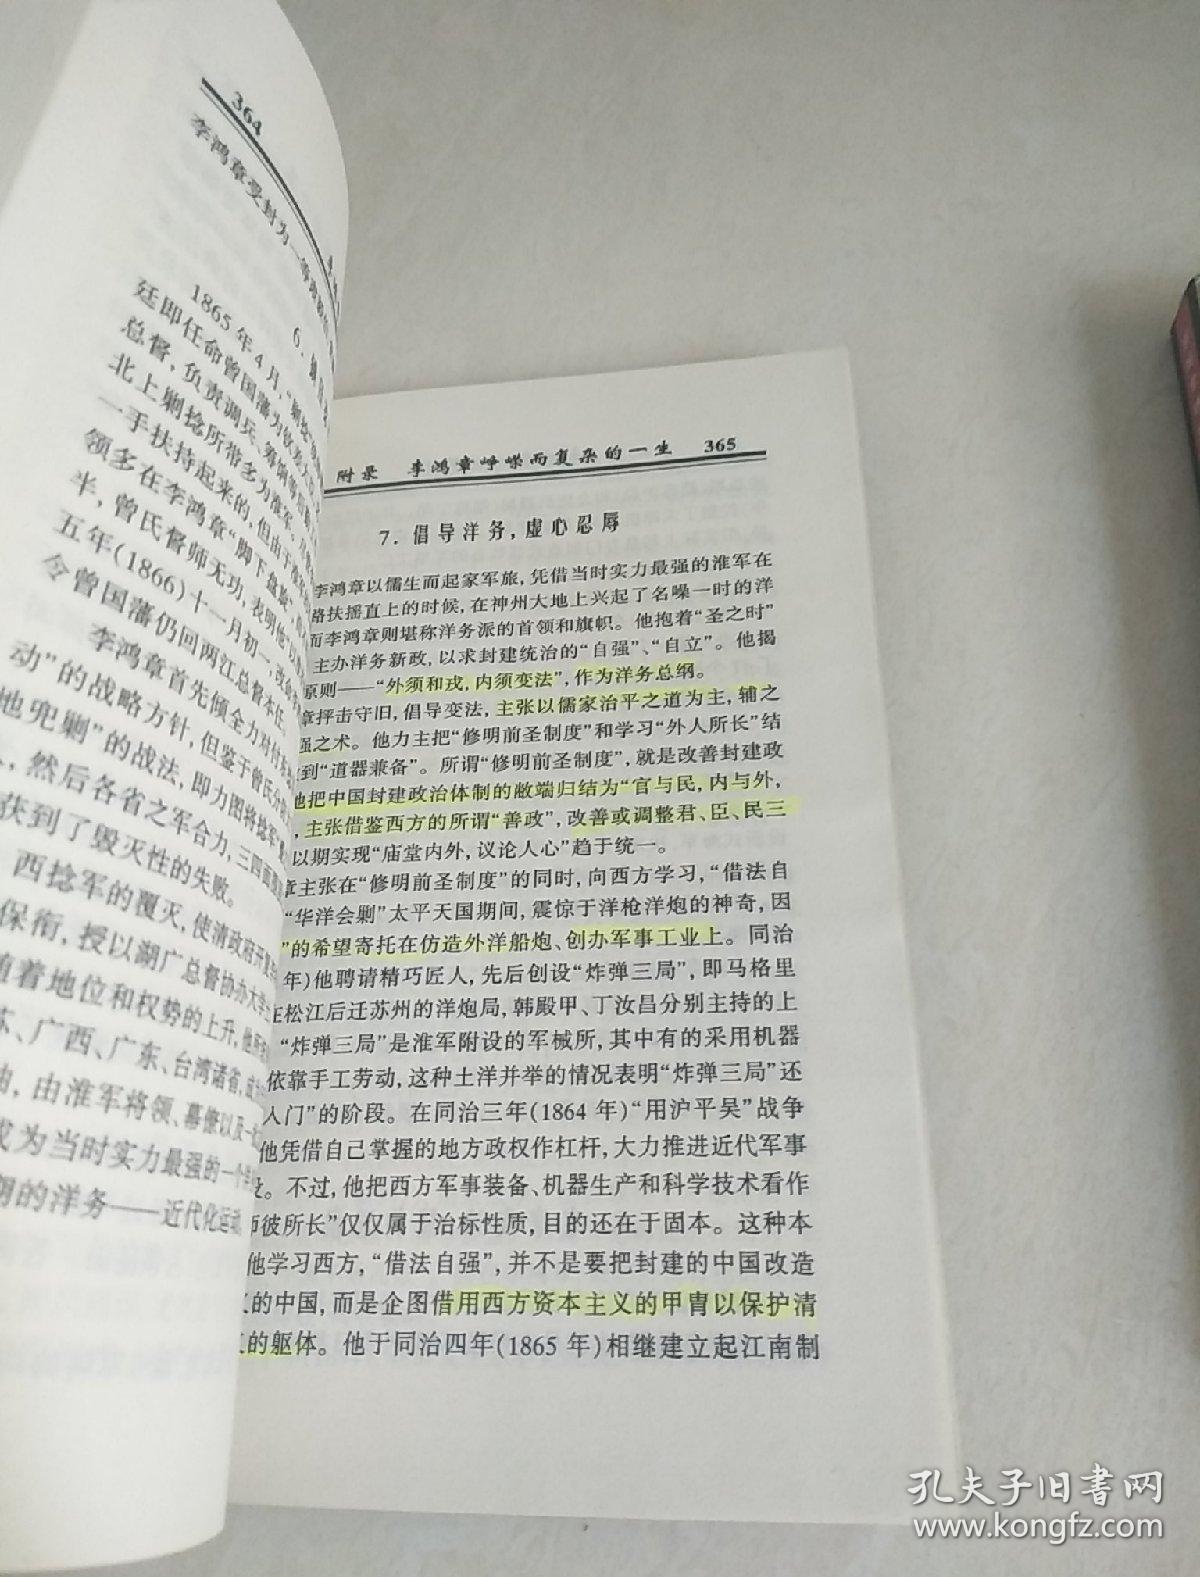 364
李鸿章受封为一等
6.
1865年4月，“剿捻”
廷即任命曾国藩为钦差大
总督，负责调兵、筹饷等
北上剿捻所带多为淮军。
一手扶持起来的，但由于
领多在李鸿章“脚下盘旋”
半，曾氏督师无功，表明他
五年(1866)十一月初一，改
令曾国藩仍回两江总督本任，
李鸿章首先倾全力对付
动”的战略方针，但鉴于曾氏分
地兜剿”的战法，即力图将捻军
，然后各省之军合力，三四面
获到了毁灭性的失败。
西捻军的覆灭，使清政府
保衔，授以湖广总督协办大学
随着地位和权势的上升，他所
、广西、广东、台湾诸省，
由淮军将领、幕僚以及
成为当时实力最强的一个
期的洋务——近代化运
附录 李鸿章峥嵘而复杂的一生 365
7. 倡导洋务，虚心忍辱
李鸿章以儒生而起家军旅，凭借当时实力最强的淮军在
路扶摇直上的时候，在神州大地上兴起了名噪一时的洋
而李鸿章则堪称洋务派的首领和旗帜。他抱着“圣之时”
主办洋务新政，以求封建统治的“自强”、“自立”。他揭
原则——“外须和戎，内须变法”，作为洋务总纲。
章抨击守旧，倡导变法，主张以儒家治平之道为主，辅之
强之术。他力主把“修明前圣制度”和学习“外人所长”结
到“道器兼备”。所谓“修明前圣制度”，就是改善封建政
他把中国封建政治体制的敝端归结为“官与民，内与外，
，主张借鉴西方的所谓“善政”，改善或调整君、臣、民三
以期实现“庙堂内外，议论人心”趋于统一。
章主张在“修明前圣制度”的同时，向西方学习，“借法自
“华洋会剿”太平天国期间，震惊于洋枪洋炮的神奇，因
”的希望寄托在仿造外洋船炮、创办军事工业上。同治
年)他聘请精巧匠人，先后创设“炸弹三局”，即马格里
在松江后迁苏州的洋炮局，韩殿甲、丁汝昌分别主持的上
“炸弹三局”是淮军附设的军械所，其中有的采用机器
依靠手工劳动，这种土洋并举的情况表明“炸弹三局”还
入门”的阶段。在同治三年(1864年)“用沪平吴”战争
他凭借自己掌握的地方政权作杠杆，大力推进近代军事
。不过，他把西方军事装备、机器生产和科学技术看作
师彼所长”仅仅属于治标性质，目的还在于固本。这种本
他学习西方，“借法自强”，并不是要把封建的中国改造
义的中国，而是企图借用西方资本主义的甲胄以保护清
的躯体。他于同治四年(1865年)相继建立起江南制
孔夫子旧书网
www.kongfz.com